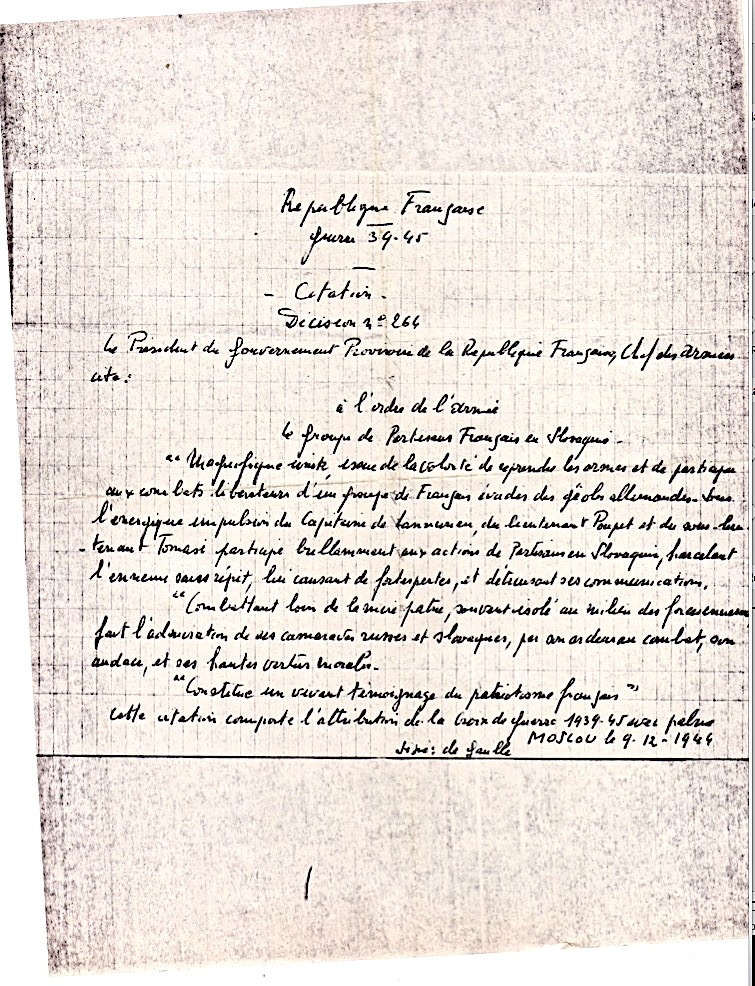 République Française
Guerre 39-45
- Citation -
Décision nº 264
Le Président du Gouvernement Provisoire de la République Française, Chef des Armées
cite :
à l'ordre de l'armée
Le Groupe de Partisans Français en Slovaquie -
"Magnifique unité, issue de la volonté de reprendre les armes et de participer
aux combats libérateurs d'un groupe de Français évadés des geôles allemandes - Sous
l'énergique impulsion du Capitaine de Lannurien, du lieutenant Poupet et du sous-lieu-
-tenant Tomasi participe brillamment aux actions de Partisans en Slovaquie, harcelant
l'ennemi sans répit, lui causant de fortes pertes, et détruisant ses communications.
"Combattant loin de la mère patrie, souvent isolé au milieu des forces ennemies
fait l'admiration de ses camarades russes et slovaques, par son ardeur au combat, son
audace, et ses hautes vertus morales -
"Constitue un vivant témoignage du patriotisme français"
Cette citation comporte l'attribution de la Croix de Guerre 1939-45 avec palme
MOSCOU le 9-12-1944
signé: de Gaulle